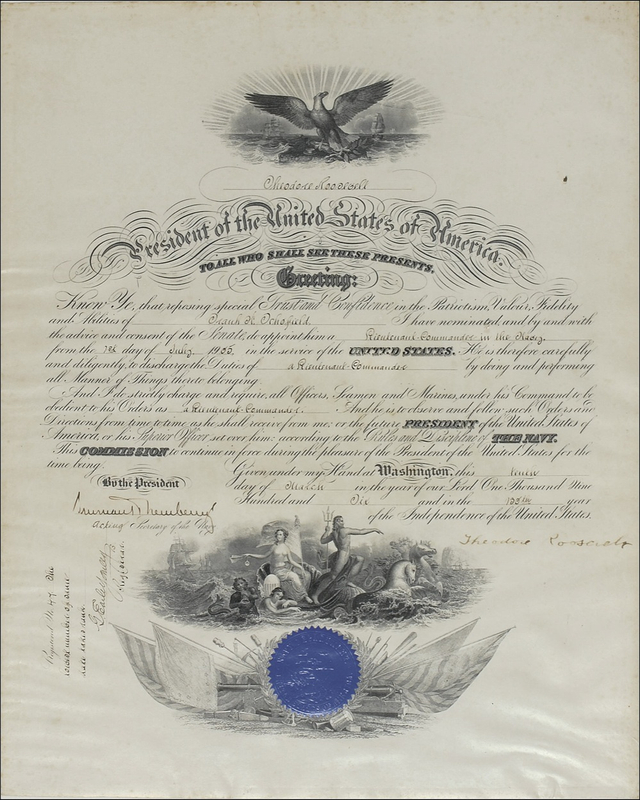 Theodore Roosevelt
President of the United States of America.
TO ALL WHO SHALL SEE THESE PRESENTS.
Greeting:
Know Ye, that, reposing special Trust and Confidence in the Patriotism, Valour, Fidelity
and Abilities of Frank H. Schofield I have nominated, and by and with
the advice and consent of the Senate, do appoint him a Lieutenant Commander in the Navy,
from the day of July, 1905, in the service of the UNITED STATES. He is therefore carefully
and diligently to discharge the Duties of a Lieutenant Commander by doing and performing
all Manner of Things thereto belonging.
And I do strictly charge and require all Officers, Seamen and Marines, under his Command to be
obedient to his Orders as a Lieutenant Commander. And he is to observe and follow such Orders and
Directions from time to time as he shall receive from me, or the future PRESIDENT of the United States of
America, or his Superior Officer set over him, according to the Rules and Discipline of THE NAVY.
This COMMISSION to continue in force during the pleasure of the President of the United States for the
time being.
Given under my Hand at Washington, this tenth
day of March in the year of our Lord One Thousand Nine
Hundred and Six and in the 130th year
of the Independence of the United States.
By the President
Truman H. Newberry
Acting Secretary of the Navy
Theodore Roosevelt